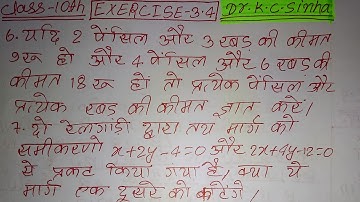 Class-10th EXERCISE-3.4 Dr. K.C. Sinha
6. यदि 2 पेंसिल और 3 रबड़ की कीमत
9 रू हो और 4 पेंसिल और 6 रबड़ की
कीमत 18 रू हो तो प्रत्येक पेंसिल और
प्रत्येक रबड़ की कीमत ज्ञात करें।
7. दो रेलगाड़ी द्वारा तय मार्ग को
समीकरणो x+2y-4=0 और 2x+4y-12=0
से प्रकट किया गया है, क्या ये
मार्ग एक दूसरे को काटेंगे।